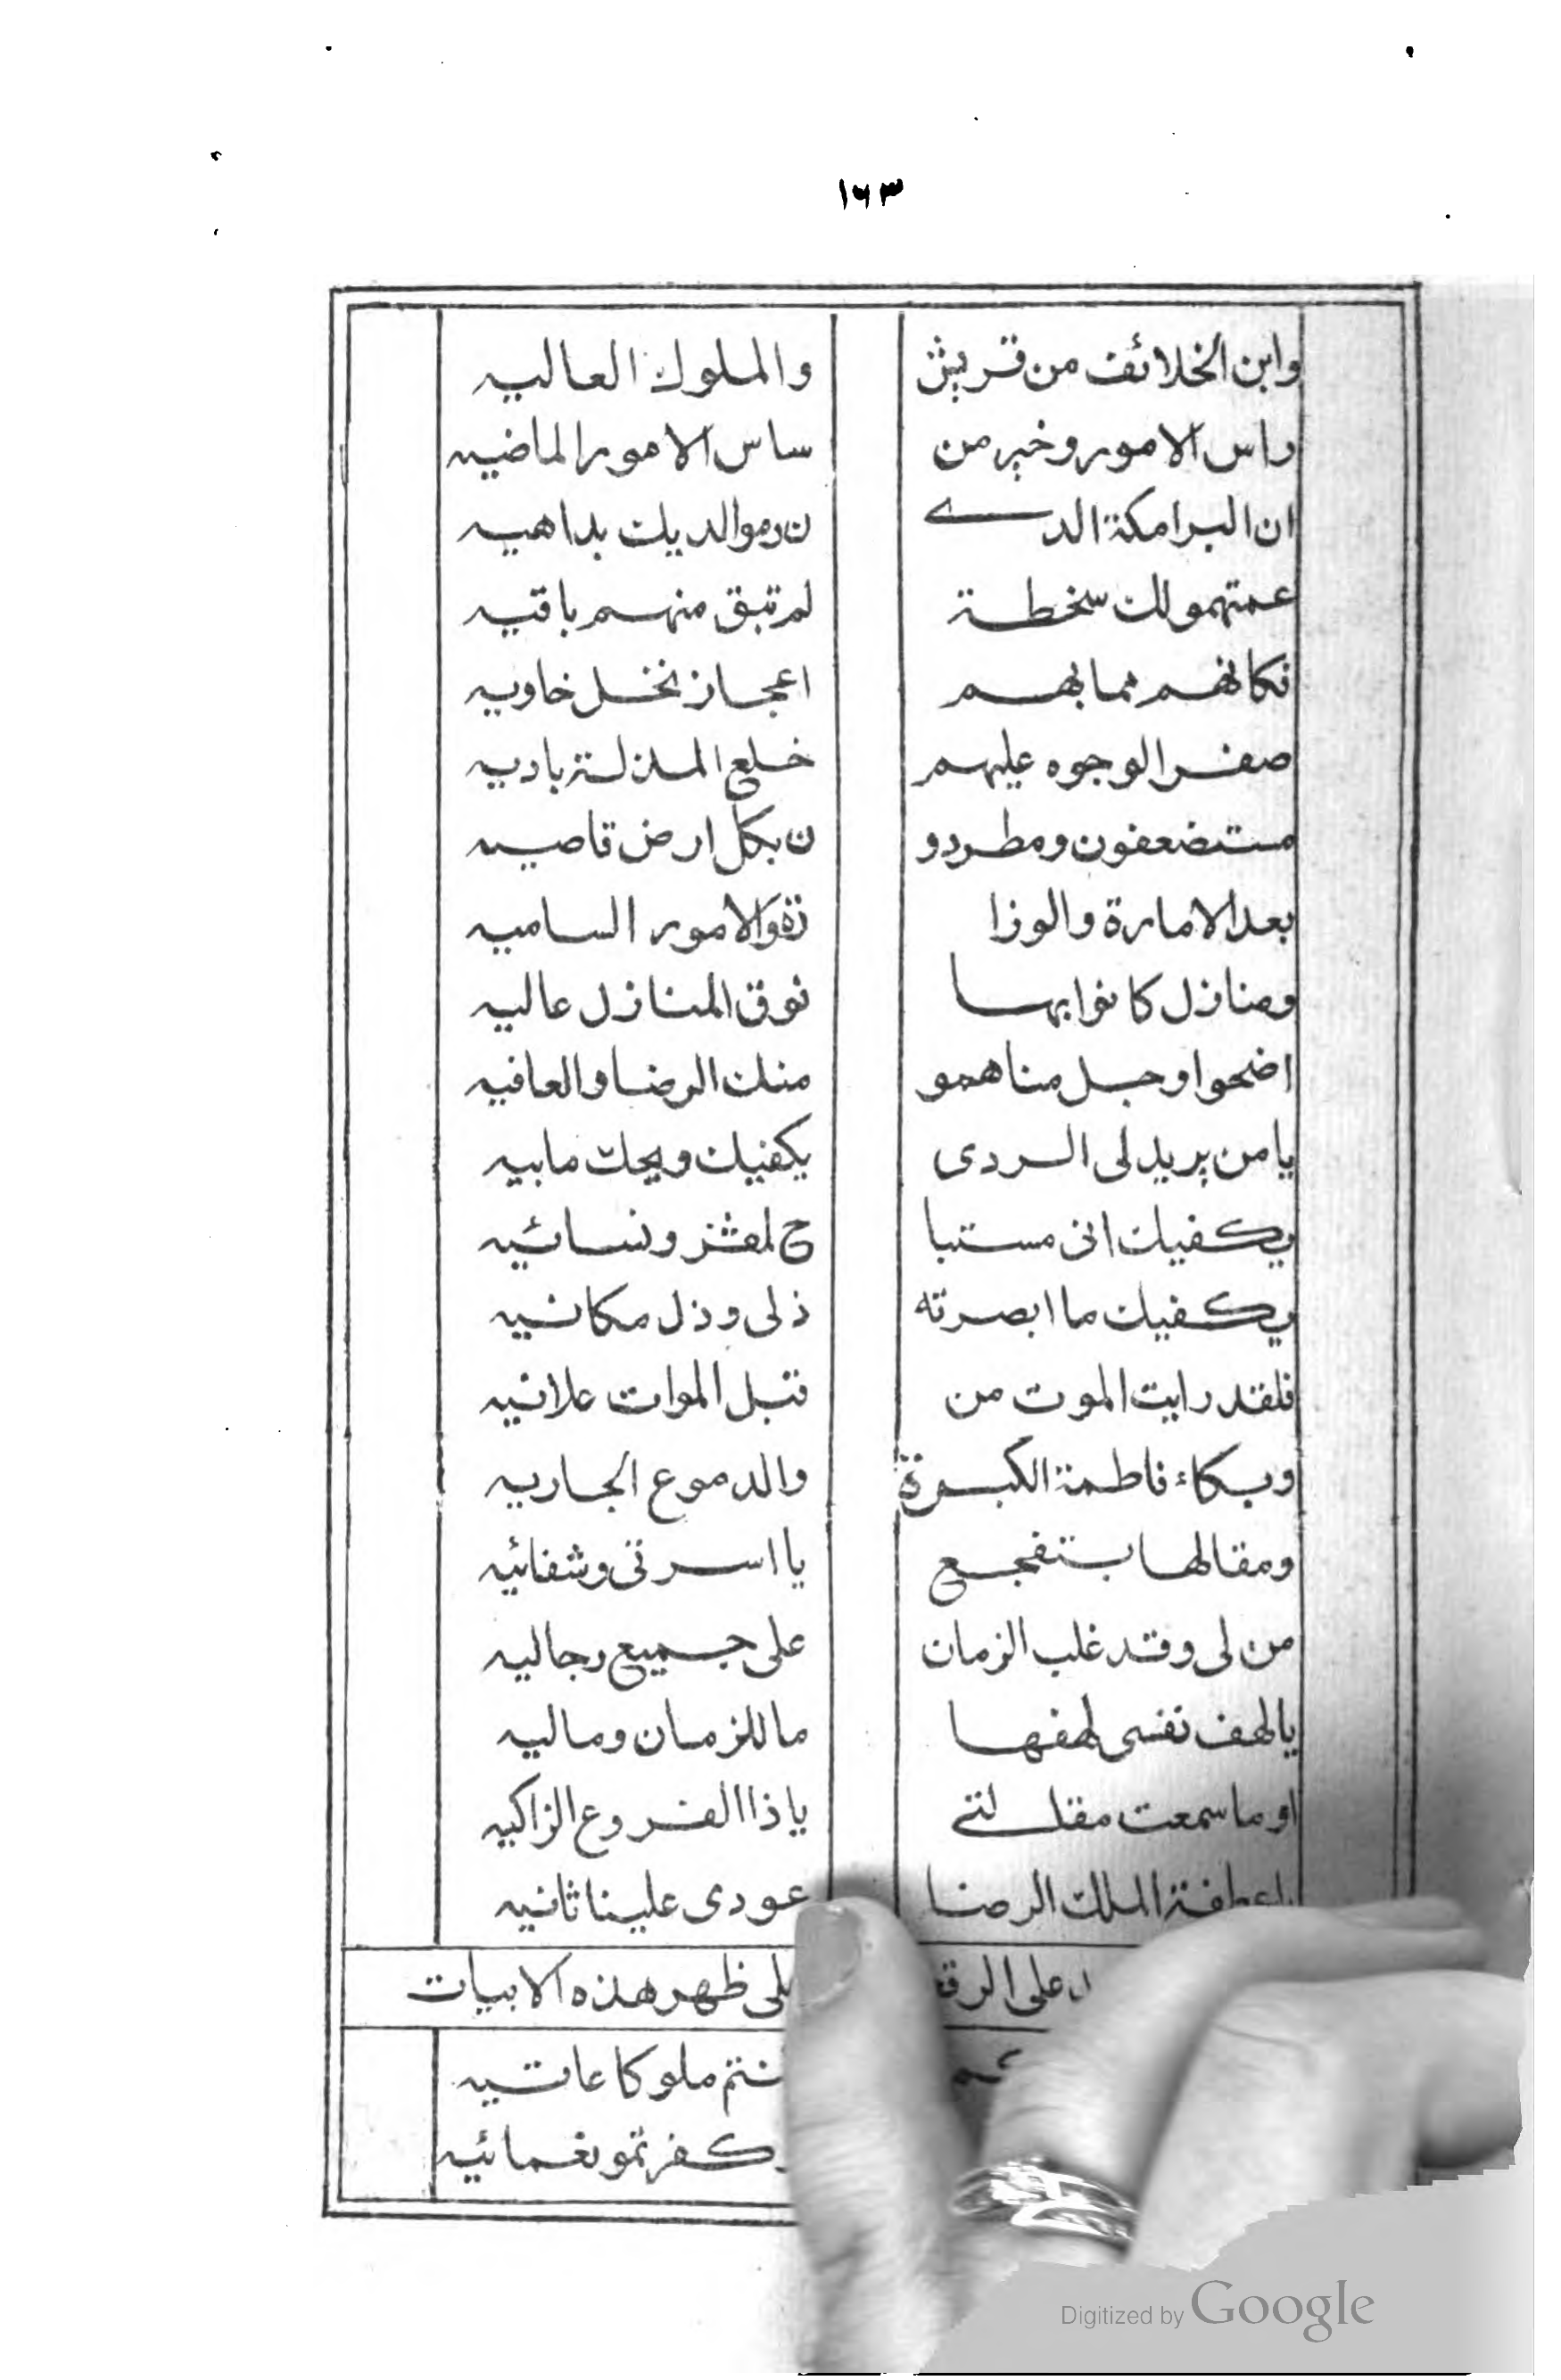 ١٦٣
وابن الخلائف من قريش والملوك العاليه
راس الامور وخير من ساس الامور الماضيه
ان البرامكة الدى ن رموا لديك بداهيه
عمتهمو لك سخطة لم تبق منهم باقيه
فكانهم مما بهم اعجاز نخل خاويه
صفر الوجوه عليهم خلع المذلة باديه
مستضعفون ومطردو ن بكل ارض قاصيه
بعد الامارة والوزا رة والامور الساميه
ومنازل كانوا بها فوق المنازل عاليه
اضحوا وجل مناهمو منك الرضا والعافيه
يا من يريد لى الردى يكفيك ويحك ما بيه
يكفيك انى مستبا ح لمعشر ونسائيه
يكفيك ما ابصرته ذلى وذل مكانيه
فلقد رايت الموت من قبل الموات علانيه
وبكاء فاطمة الكبيرة والدموع الجاريه
ومقالها بتفجع يا اسرتى وشفائيه
من لى وقد غلب الزمان على جميع رجاليه
يا لهف نفسى لهفها ما للزمان وماليه
او ما سمعت مقالتى يا ذا الفروع الزاكيه
يا عطفة الملك الرضا عودى علينا ثانيه
على ظهر هذه الابيات
ملوكا عاتيه
نعمائيه
Digitized by Google